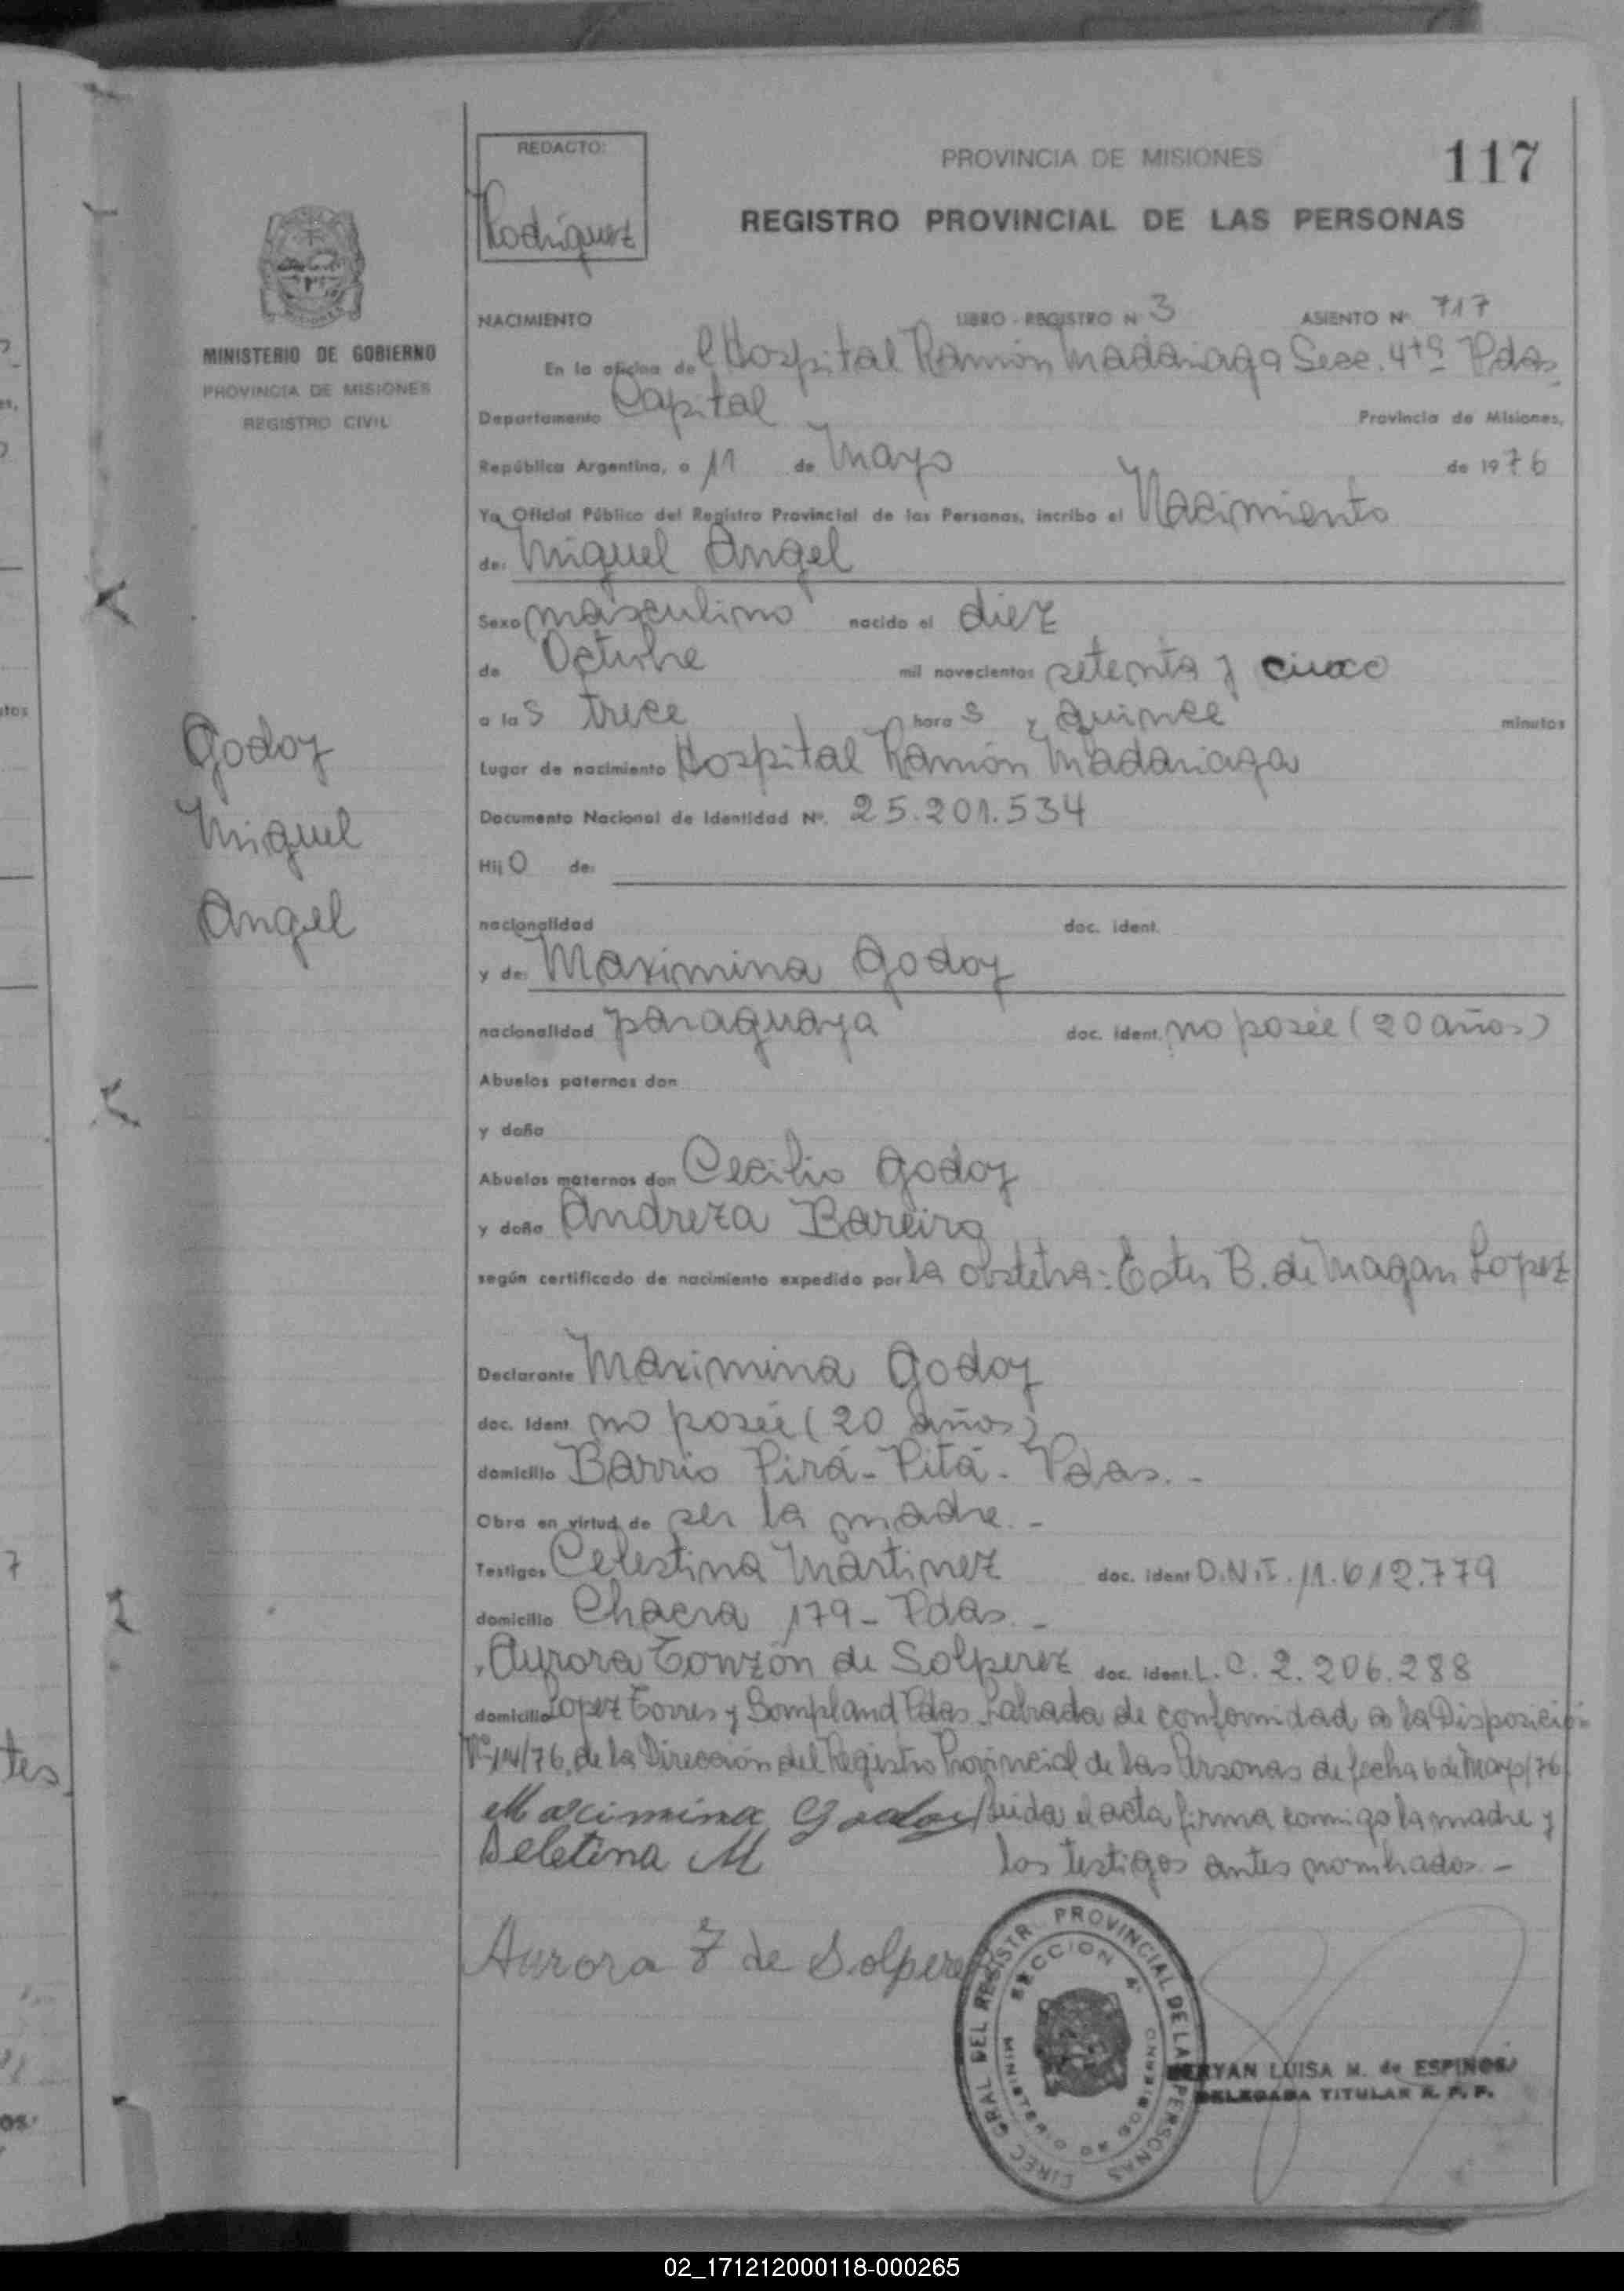 REDACTO:
Rodriguez
PROVINCIA DE MISIONES
117
REGISTRO PROVINCIAL DE LAS PERSONAS
MINISTERIO DE GOBIERNO
PROVINCIA DE MISIONES
REGISTRO CIVIL
NACIMIENTO LIBRO - REGISTRO N 3 ASIENTO Nº 717
En la oficina del Hospital Ramón Madariaga Secc. 4ta Pdas
Departamento Capital Provincia de Misiones,
República Argentina, a 11 de Mayo de 1976
Yo Oficial Público del Registro Provincial de las Personas, incribo el Nacimiento
de: Miguel Angel
Sexo masculino nacido el diez
de Octubre mil novecientos setenta y cinco
a las trece horas y quince minutos
Godoy
Miguel
Angel
Lugar de nacimiento Hospital Ramón Madariaga
Documento Nacional de Identidad Nº. 25.201.534
Hijo de:
nacionalidad doc. ident.
y de: Maximina Godoy
nacionalidad paraguaya doc. ident. no poseé (20 años)
Abuelos paternos don
y doña
Abuelos maternos don Cecilio Godoy
y doña Andreza Bareiro
según certificado de nacimiento expedido por la obstetra: Ester B. de Magan Lopez
Declarante Maximina Godoy
doc. ident no poseé (20 años)
domicilio Barrio Pirá-Pitá- Pdas.-
Obra en virtud de ser la madre.-
Testigos Celestina Martinez doc. ident D.N.I. 11.612.779
domicilio Chacra 179- Pdas.-
y Aurora Tonzón de Solperez doc. ident. L.C. 2.206.288
domicilio Lopez Torres y Bompland Pdas. Labrada de conformidad a la Disposición
Nº 14/76, de la Dirección del Registro Provincial de las Personas de fecha 6 de Mayo/76
Maximina Godoy Leida el acta firma conmigo la madre y
Seletina M los testigos antes nombrados.-
Aurora T de Solperez
DIREC GRAL DEL REGISTR. PROVINCIAL DE LAS PERSONAS
SECCION 4ª
MINISTERIO DE GOBIERNO
MERYAN LUISA M. de ESPINOSA
DELEGADA TITULAR R. P. P.
02_171212000118-000265